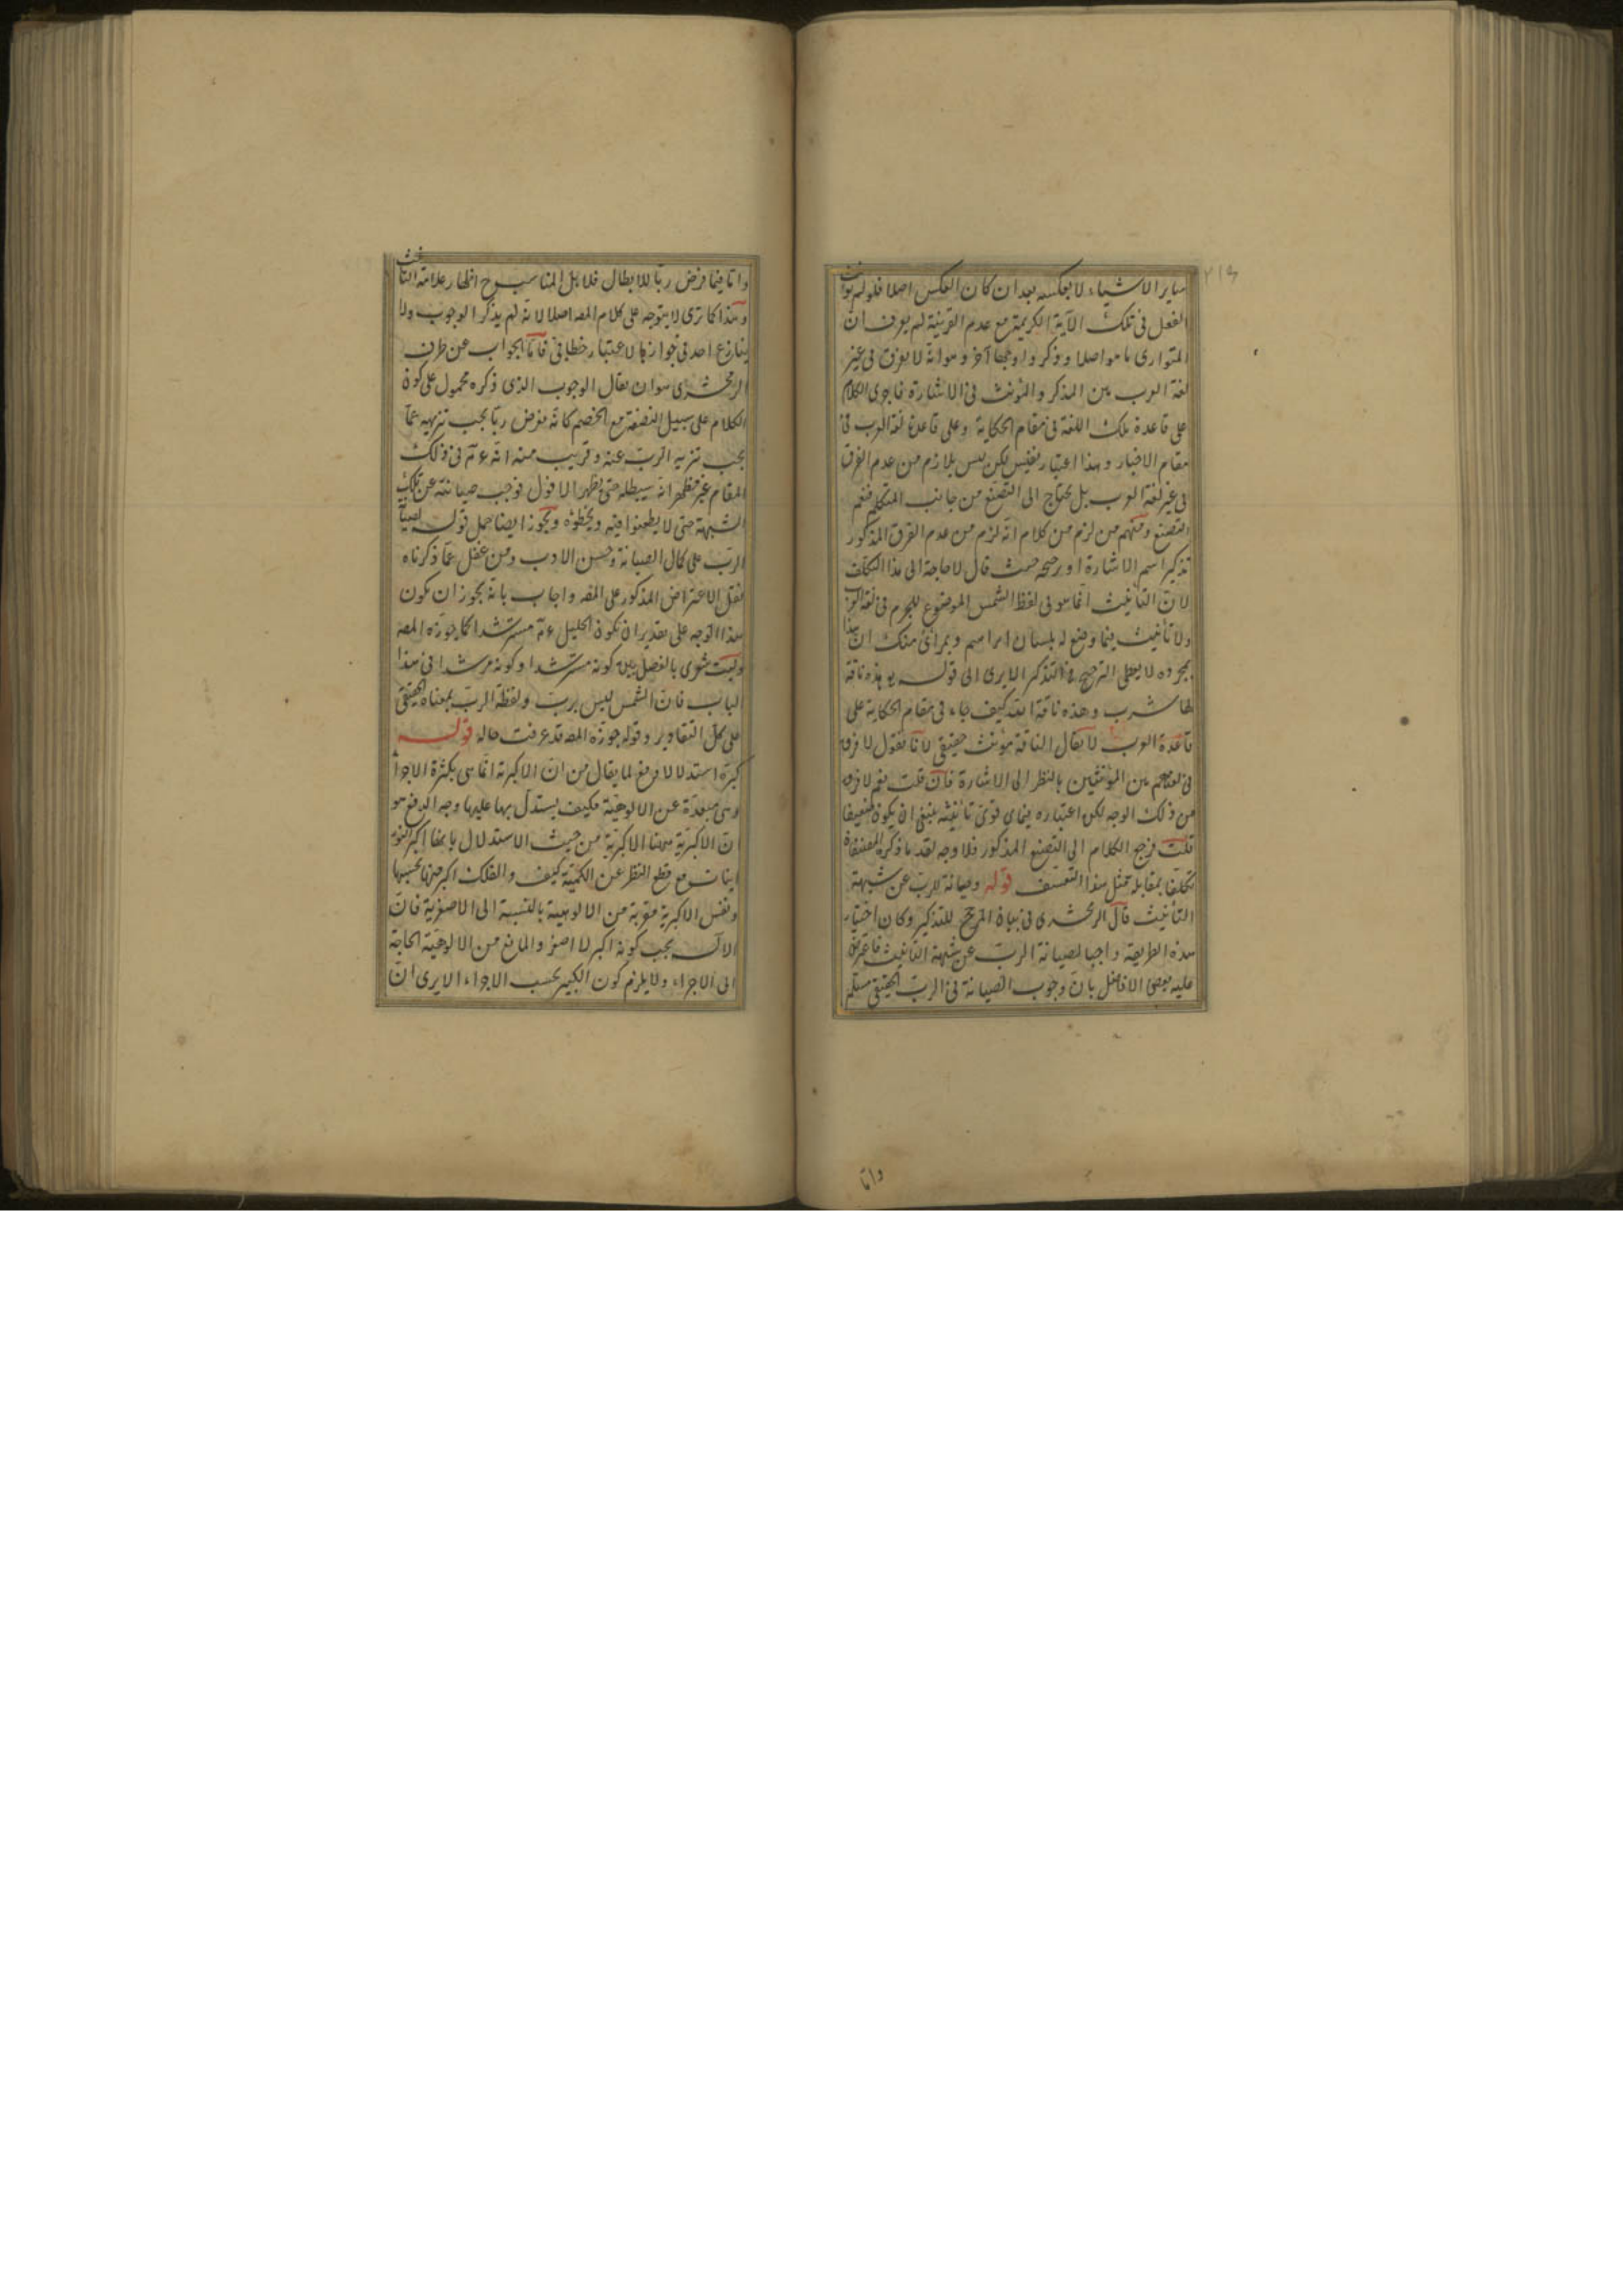 ٢١٩
ساير الاشياء لا بعكسه بعد ان كان العكس اصلا فلو لم يؤنث
الفعل فى تلك الآية الكريمة مع عدم القرينة لم يعرف ان
المتوارى ما هو اصلا وذكروا وجها آخر وهو انه لا يفرق فى غير
لغة العرب بين المذكر والمؤنث فى الاشارة فاجرى الكلام
على قاعدة تلك اللغة فى مقام الحكاية وعلى قاعدة لغة العرب فى
مقام الاخبار وهذا اعتبار نفيس لكن ليس بلازم من عدم الفرق
فى غير لغة العرب بل يحتاج الى التصنع من جانب المتكلم فنعم
التصنع ومنهم من لزم من كلام انه لزم من عدم الفرق المذكور
تذكير اسم الاشارة او رجحه حيث قال لا حاجة الى هذا التكلف
لان التأنيث انما هو فى لفظ الشمس الموضوع للجرم فى لغة العرب
ولا تأنيث فيما وضع له بلسان ابراهيم وبمرأى منك ان هذا
بمجرده لا يعطى الترجيح فى التذكير الا يرى الى قوله هذه ناقة
لها شرب وهذه ناقة الله كيف جاء فى مقام الحكاية على
قاعدة العرب لا يقال الناقة مؤنث حقيقى لانا نقول لا فرق
فى لغتهم بين المؤنثين بالنظر الى الاشارة فان قلت نعم لا فرق
من ذلك الوجه لكن اعتباره فيما قوى تأنيثه ينبغى ان يكون ضعيفا
قلت فرجع الكلام الى التصنع المذكور فلا وجه لعد ما ذكره المصنف
تكلفا بمقابلة مثل هذا التعسف قوله وصيانة للرب عن شبهة
التأنيث قال الزمخشرى فى بيان المرجح للتذكير وكان اختيار
هذه الطريقة واجبا لصيانة الرب عن شبهة التأنيث فاعترض
عليه بعض الافاضل بان وجوب الصيانة فى الرب الحقيقى مسلم
واما
واما فيما فرض ربا للابطال فلا بل المناسب ح اظهار علامة التأنيث
وهذا كما ترى لا يتوجه على كلام المصه اصلا لانه لم يذكر الوجوب ولا
ينازع احد فى جوازها لاعتبار خطابى فاما الجواب عن طرف
الزمخشرى هو ان يقال الوجوب الذى ذكره محمول على كون
الكلام على سبيل النصفة مع الخصم كانه مفرض ربا يجب تنزيهه عما
يجب تنزيه الرب عنه وقريب منه انه ء م فى ذلك
المقام غير مظهر انه سيبطله حتى يظهر الافول فوجب صيانته عن تلك
الشبهة حتى لا يطعنوا فيه ويخطؤه ويجوز ايضا حمل قوله لصيانة
الرب على كمال الصيانة وحسن الادب ومن غفل عما ذكرناه
نقل الاعتراض المذكور على المصه واجاب بانه يجوز ان يكون
هذا الوجه على تقدير ان يكون الخليل ء م مسترشدا كما جوزه المصه
وليت شعرى بالفصل بين كونه مسترشدا وكونه مرشدا فى هذا
الباب فان الشمس ليس برب ولفظة الرب بمعناه الحقيقى
على كل التقادير وقوله جوزه المصه قد عرفت حاله قوله
كبره استدلالا دفع لما يقال من ان الاكبرية انما هى بكثرة الاجزاء
وهى مبعدة عن الالوهية فكيف يستدل بها عليها وجه الدفع هو
ان الاكبرية ههنا الاكبرية من حيث الاستدلال بانها اكبر
مع قطع النظر عن الكمية كيف والفلك اكبر منها بحسبها
ونفس الاكبرية مقربة من الالوهية بالنسبة الى الاصغرية فان
الاله يجب كونه اكبر لا اصغر والمانع من الالوهية الحاجة
الى الاجزاء ولا يلزم كون الكبير بحسب الاجزاء الا يرى ان